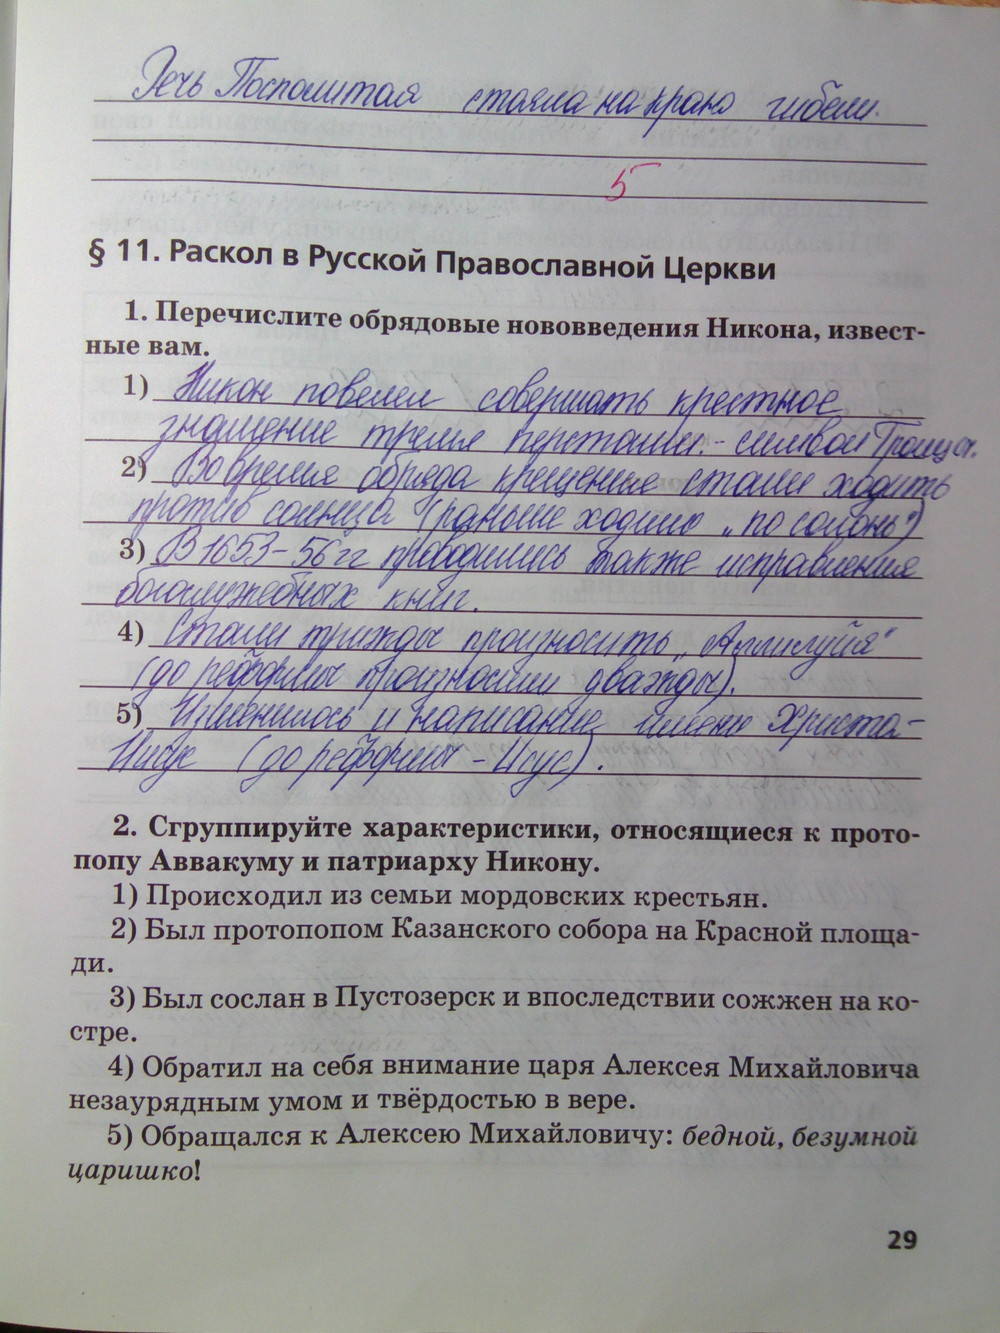 Речь Посполитая стояла на краю гибели.
5
§ 11. Раскол в Русской Православной Церкви
1. Перечислите обрядовые нововведения Никона, извест-
ные вам.
1) Никон повелел совершать крестное
знамение тремя перстами - символ Троицы.
2) Во время обряда крещение стали ходить
против солнца (раньше ходили „по солонь")
3) В 1653-56 гг проводились также исправления
богослужебных книг.
4) Стали трижды произносить „Аллилуйя"
(до реформы произносили дважды).
5) Изменилось и написание имени Христа-
Иисус (до реформы - Исус).
2. Сгруппируйте характеристики, относящиеся к прото-
попу Аввакуму и патриарху Никону.
1) Происходил из семьи мордовских крестьян.
2) Был протопопом Казанского собора на Красной площа-
ди.
3) Был сослан в Пустозерск и впоследствии сожжен на ко-
стре.
4) Обратил на себя внимание царя Алексея Михайловича
незаурядным умом и твёрдостью в вере.
5) Обращался к Алексею Михайловичу: бедной, безумной
царишко!
29